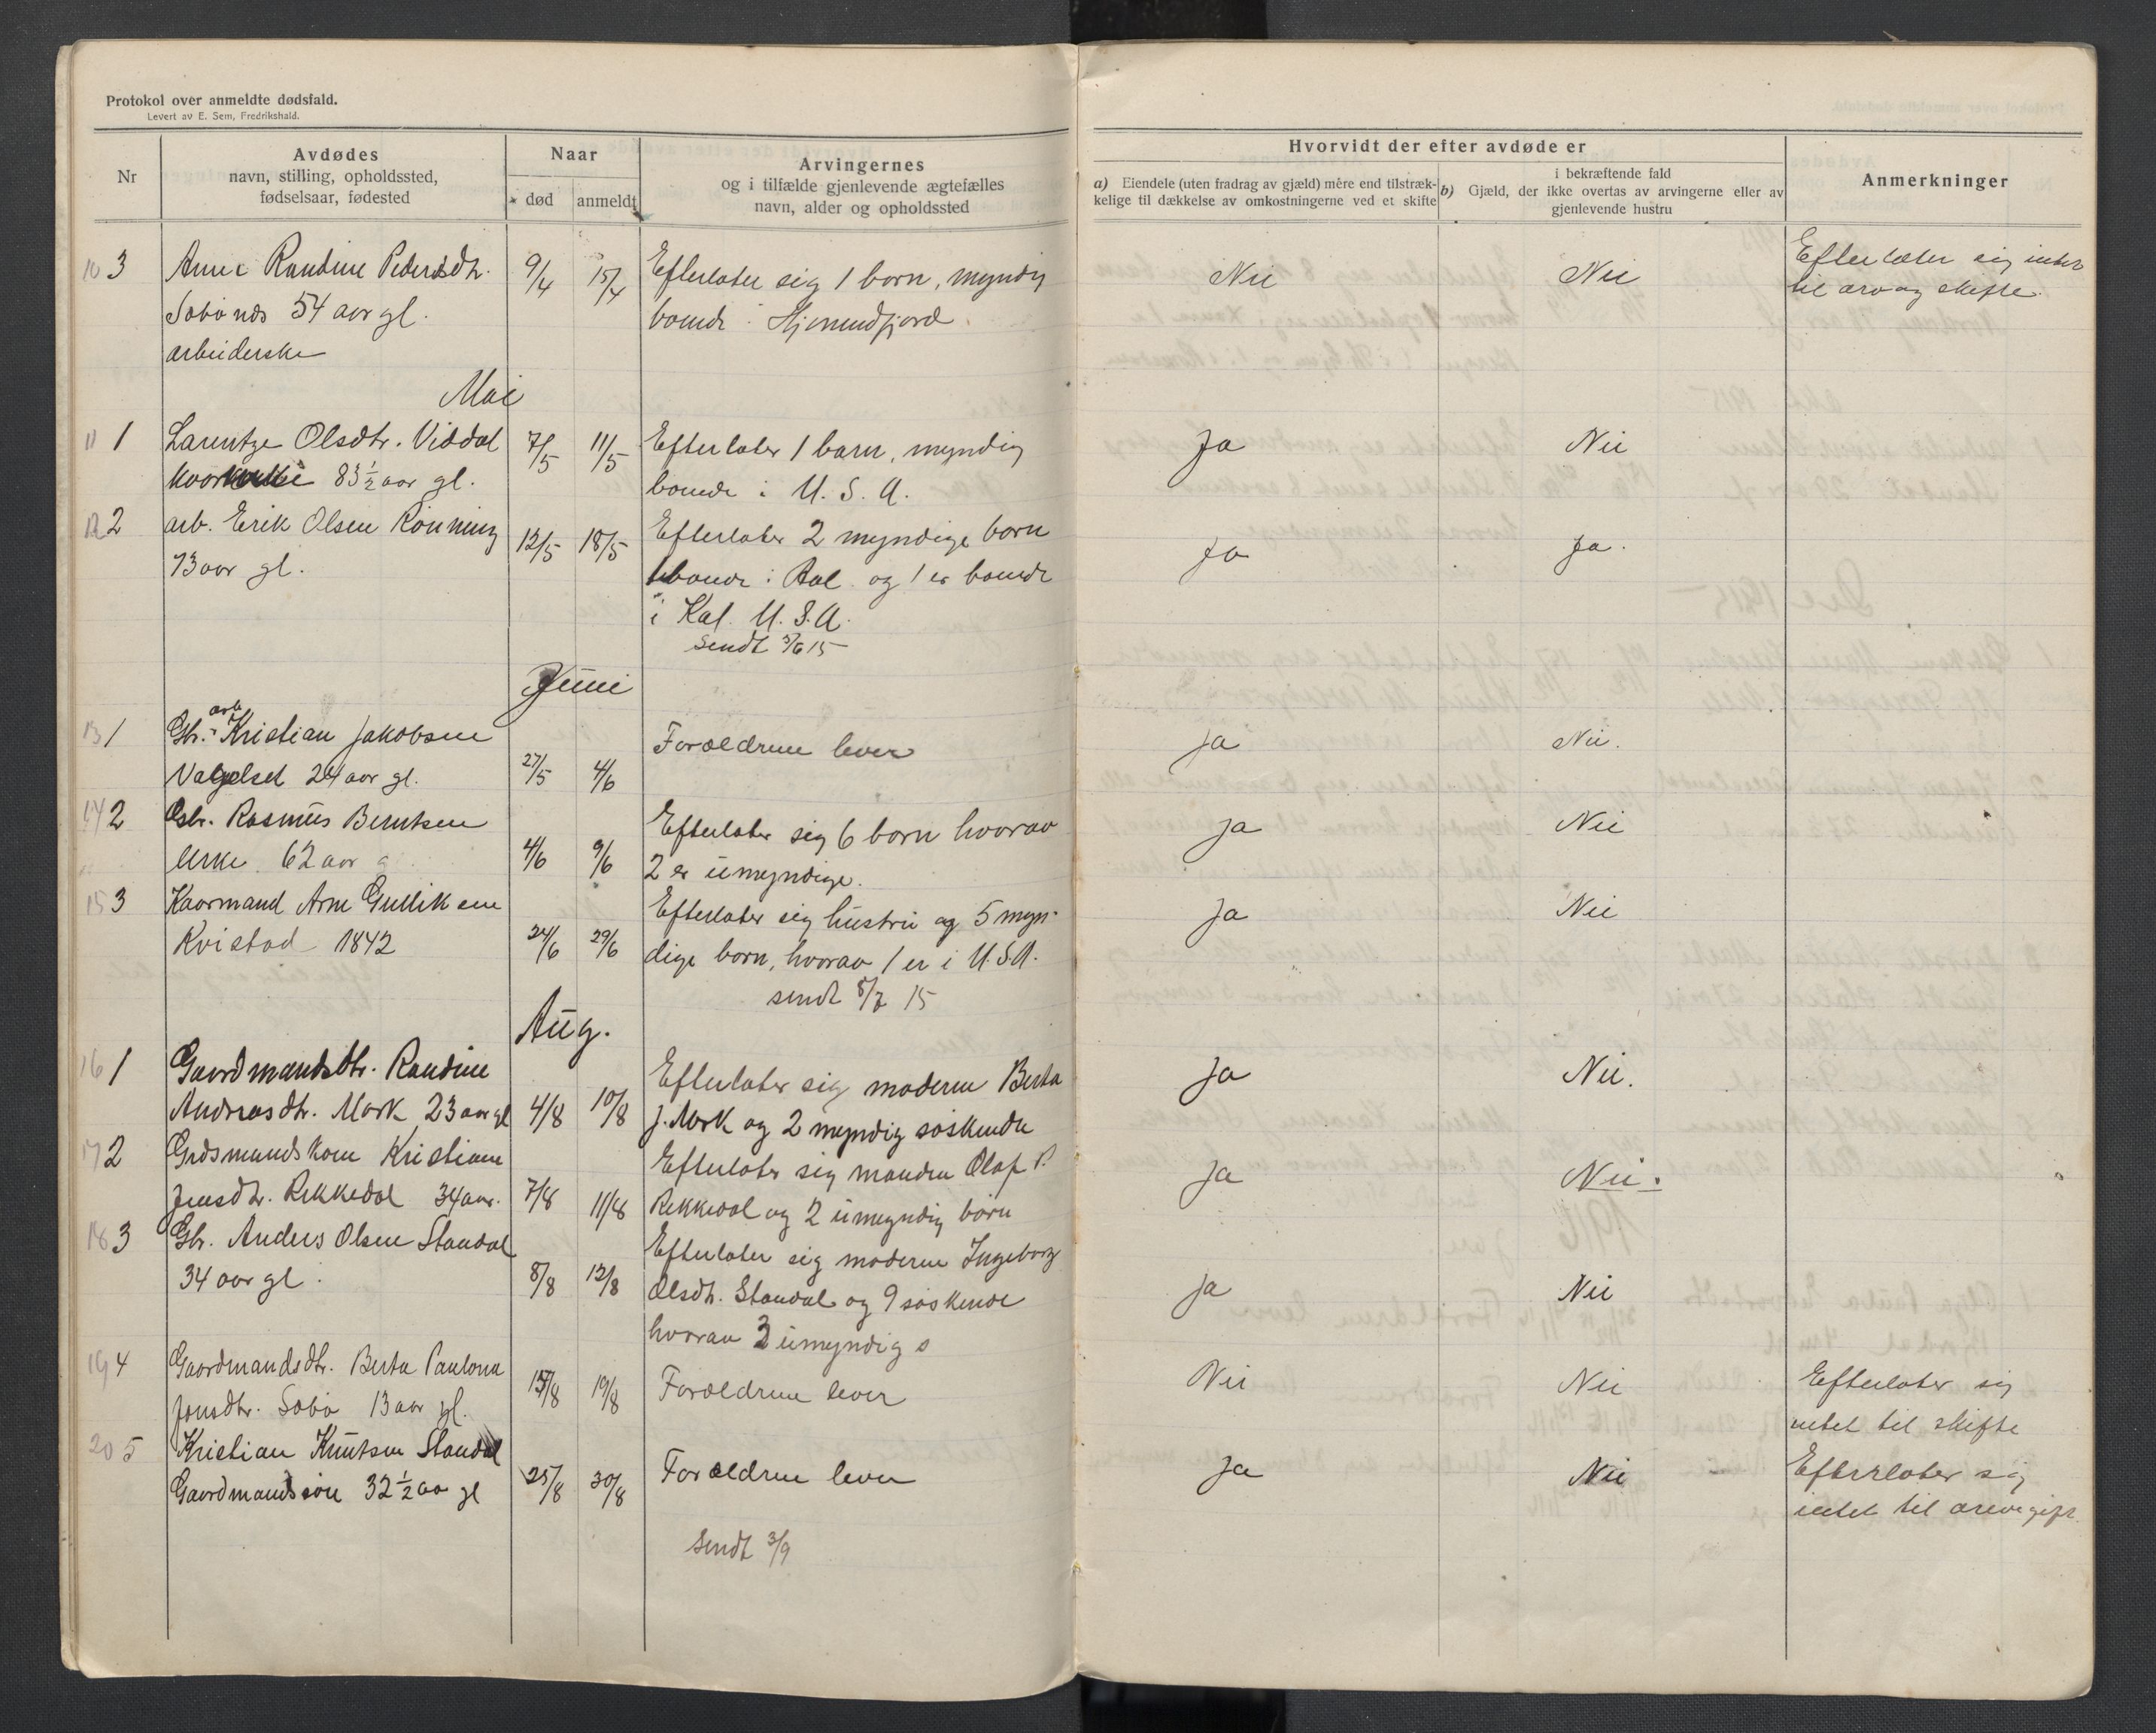 Protokol over anmeldte dødsfald.
Levert av E. Sem, Fredrikshald.
Nr
Avdødes
navn, stilling, opholdssted,
fødselsaar, fødested
Naar
død
anmeldt
Arvingernes
og i tilfælde gjenlevende ægtefælles
navn, alder og opholdssted
Hvorvidt der efter avdøde er
a) Eiendele (uten fradrag av gjæld) mere end tilstræk-
kelige til dækkelse av omkostningerne ved et skifte
i bekræftende fald
b) Gjæld, der ikke overtas av arvingerne eller av
gjenlevende hustru
Anmerkninger
10 3 Anne Randine Pedersdtr. 9/4 15/4 Efterlater sig 1 born, myndig Nei Nei Efterlater sig intet
Sæbønes 54 aar gl. boende i Hjørundfjord til arv og skifte.
arbeiderske
Mai
11 1 Larentze Olsdtr. Viddal 7/5 11/5 Efterlater 1 barn, myndig Ja Nei
83 1/2 aar gl. boende i U.S.A.
12 2 arb. Erik Olsen Rönning 12/5 18/5 Efterlater 2 myndige born Ja Ja.
73 aar gl. 1 boende i Aal og 1 er boende
i Kal. U.S.A.
Sendt 3/6 15
Juni
13 1 Gbr. arb Kristian Jakobsen Forældrene lever Ja Nei.
24 aar gl. 27/5 4/6
14 2 Gbr. Rasmus Berntsen Efterlater sig 6 born hvorav Ja Nei
Urke 62 aar g 4/6 9/6 2 er umyndige.
15 3 Kaarmand Arne Gullik sen Efterlater sig hustru og 5 myn- Ja Nei
Kvistad 1842 24/6 29/6 dige born, hvorav 1 er i U.S.A.
sendt 8/7 15
Aug.
16 1 Gaardmandsdtr. Randine Efterlater sig moderen Berta Ja Nei.
Andreasdtr. Mork 23 aar gl 4/8 10/8 J. Mork og 2 myndig søskende
17 2 Grdsmandskone Kristiane Efterlater sig manden Olaf P. Ja Nei.
Jensdtr. Rekkedal 34 aar. 7/8 11/8 Rekkedal og 2 umyndig börn
18 3 Gbr. Anders Olsen Standal Efterlater sig moderen Ingeborg
34 aar gl. 8/8 12/8 Olsdtr. Standal og 9 søskende Ja Nei
hvorav 3 umyndig e
19 4 Gaardmandsdtr. Berta Paulona 15/8 19/8 Forældrene lever Nei Nei Efterlater sig
Jonsdtr. Sæbø 13 aar gl. intet til skifte
20 5 Kristian Knutsen Standal 25/8 30/8 Forældrene lever Ja Nei Efterlater sig
Gaardmandssön 32 1/2 aar gl intet til
Sendt 3/9